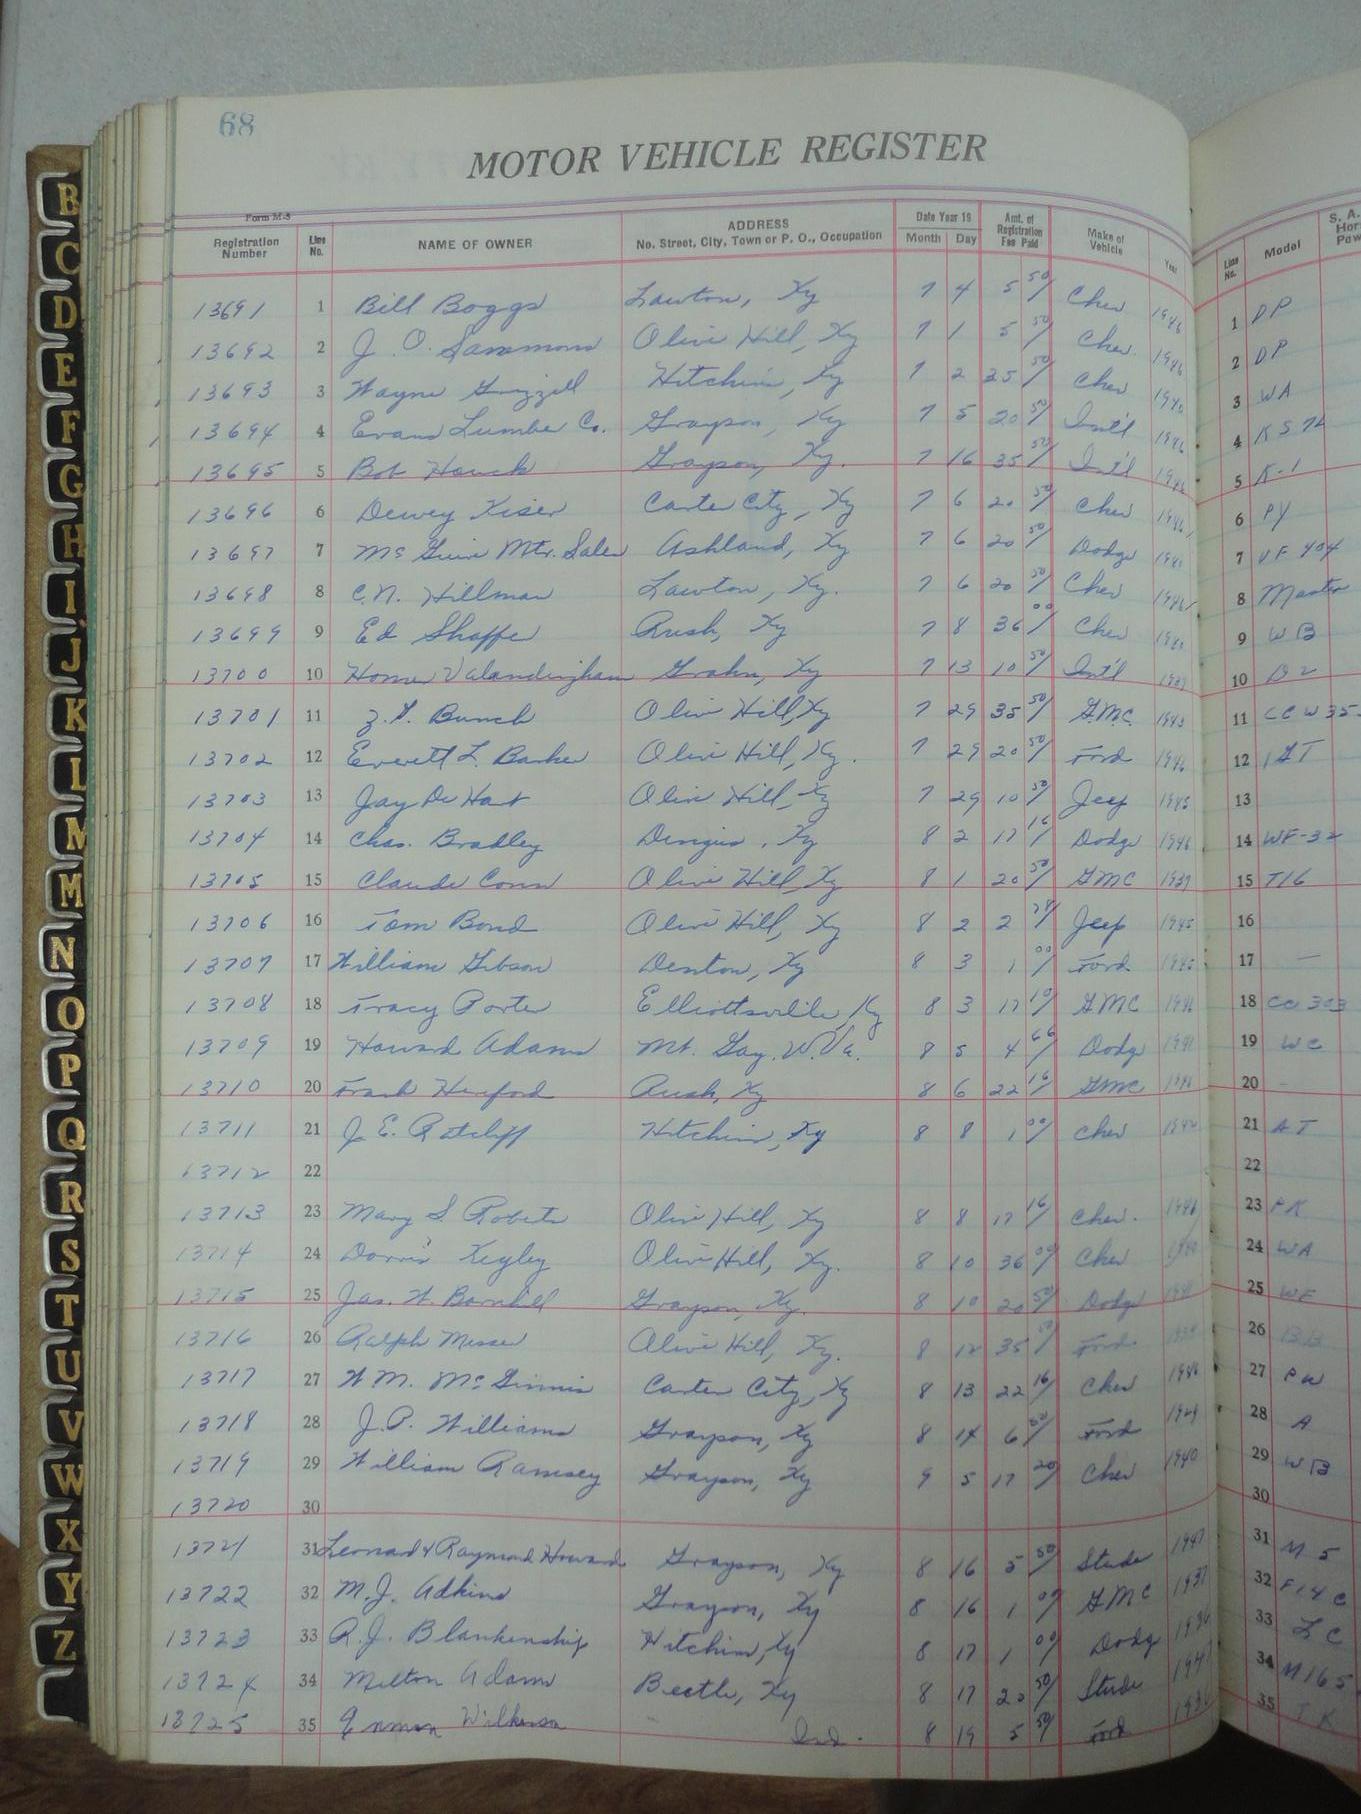 68
MOTOR VEHICLE REGISTER
Form M-5
Registration Number Line No. NAME OF OWNER ADDRESS No. Street, City, Town or P. O., Occupation Date Year 19 Month Day Amt. of Registration Fee Paid Make of Vehicle Year Line No. Model S. A. Hor Pow
13691 1 Bill Boggs Lawton, Ky 7 4 5 50 Chev 1946 1 DP
13692 2 J. O. Sammons Olive Hill, Ky 7 1 5 50 Chev. 1946 2 DP
13693 3 Wayne Grizzell Hitchins, Ky 7 2 50 Chev 3 WA
13694 4 Evans Lumber Co. Grayson, Ky 7 5 20 50 Int'l 1946 4
13695 5 Bob Houck Grayson, Ky. 7 16 35 50 Int'l 5 K-1
13696 6 Dewey Kiser Carter City, Ky 7 6 20 50 Chev 1946 6 PY
13697 7 Mc Guire Mtr. Sales Ashland, Ky 7 6 20 50 Dodge 7 VF 404
13698 8 C.N. Hillman Lawton, Ky. 7 6 20 50 Chev 8 Master
13699 9 Ed Shaffer Rush, Ky 7 8 36 00 Chev 9 WB
13700 10 Homer Valandingham Grahn, Ky 7 13 10 50 Int'l 10 D2
13701 11 Bunch Olive Hill, Ky 7 29 35 50 G.M.C. 11 CCW 35
13702 12 Everett L. Barker Olive Hill, Ky. 7 29 20 50 Ford 1946 12
13703 13 Jay De Hart Olive Hill, Ky 7 29 10 50 Jeep 1945 13
13704 14 Chas. Bradley Ky 8 2 17 16 Dodge 1946 14 WF-32
13705 15 Claude Conn Olive Hill, Ky 8 1 20 50 GMC 1937 15 T16
13706 16 Tom Bond Olive Hill, Ky 8 2 2 Jeep 1945 16
13707 17 William Gibson Denton, Ky 8 3 1 00 Ford 17 —
13708 18 Tracy Porter Elliottsville, Ky 8 3 17 GMC 18 CC 303
13709 19 Howard Adams Mt. Gay, W.Va. 8 5 4 66 Dodge 1941 19 WC
13710 20 Frank Rush, Ky 8 6 22 16 GMC 20
13711 21 J. E. Ratcliff Hitchins, Ky 8 8 1 00 Chev 21 AT
13712 22 22
13713 23 Mary S. Roberts Olive Hill, Ky 8 8 17 16 Chev. 1946 23 PK
13714 24 Dorris Kegley Olive Hill, Ky. 8 10 36 00 Chev 24 WA
13715 25 Jas. W. Barnhill Grayson, Ky. 8 10 20 50 Dodge 25 WF
13716 26 Ralph Messer Olive Hill, Ky. 8 12 35 50 Ford 26
13717 27 W. M. Mc Ginnis Carter City, Ky 8 13 22 16 Chev 1946 27
13718 28 J.P. Williams Grayson, Ky 8 14 6 Ford 1929 28 A
13719 29 William Ramsey Grayson, Ky 9 5 17 20 Chev 1940 29 WB
13720 30 30
13721 31 Leonard & Raymond Howard Grayson, Ky 8 16 5 50 Stude 1947 31 M 5
13722 32 M.J. Adkins Grayson, Ky 8 16 1 00 GMC 1937 32 F14C
13723 33 R.J. Blankenship Hitchins, Ky 8 17 1 00 Dodge 1936 33 LC
13724 34 Milton Adams Beetle, Ky 8 17 20 50 Stude 1947 34 M165
13725 35 Wilkerson Ind. 8 19 5 50 Ford 1936 35 TK
B
C
D
E
F
G
H
I
J
K
L
M
M
N
O
P
Q
R
S
T
U
V
W
X
Y
Z